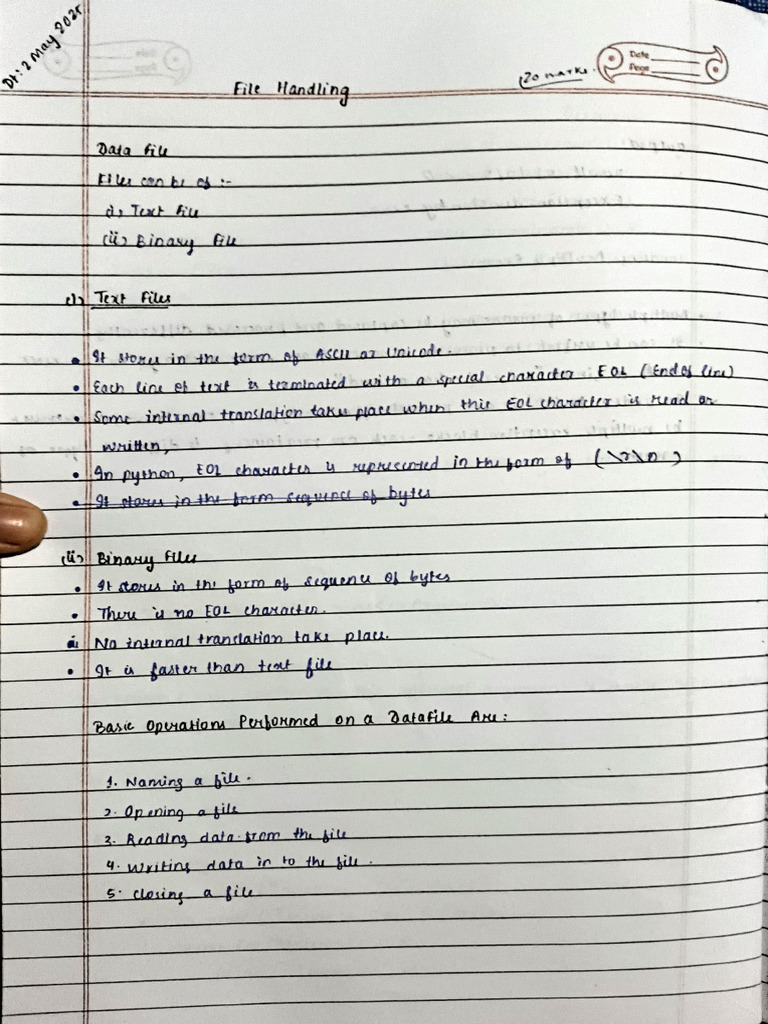 Dt: 2 May 2025
Date
Page
20 marks.
File Handling
Data file
Files can be of :-
i) Text File
(ii) Binary File
i) Text Files
• It stores in the form of ASCII or Unicode.
• Each line of text is terminated with a special character EOL (End of line)
• Some internal translation takes place when this EOL character is read or
written,
• In python, EOL character is represented in the form of (\r\n)
• It stores in the form sequence of bytes
(ii) Binary Files
• It stores in the form of sequence of bytes
• There is no EOL character.
• No internal translation take place.
• It is faster than text file
Basic Operations Performed on a Datafile Are:
1. Naming a file.
2. Opening a file
3. Reading data from the file
4. Writing data in to the file.
5. Closing a file